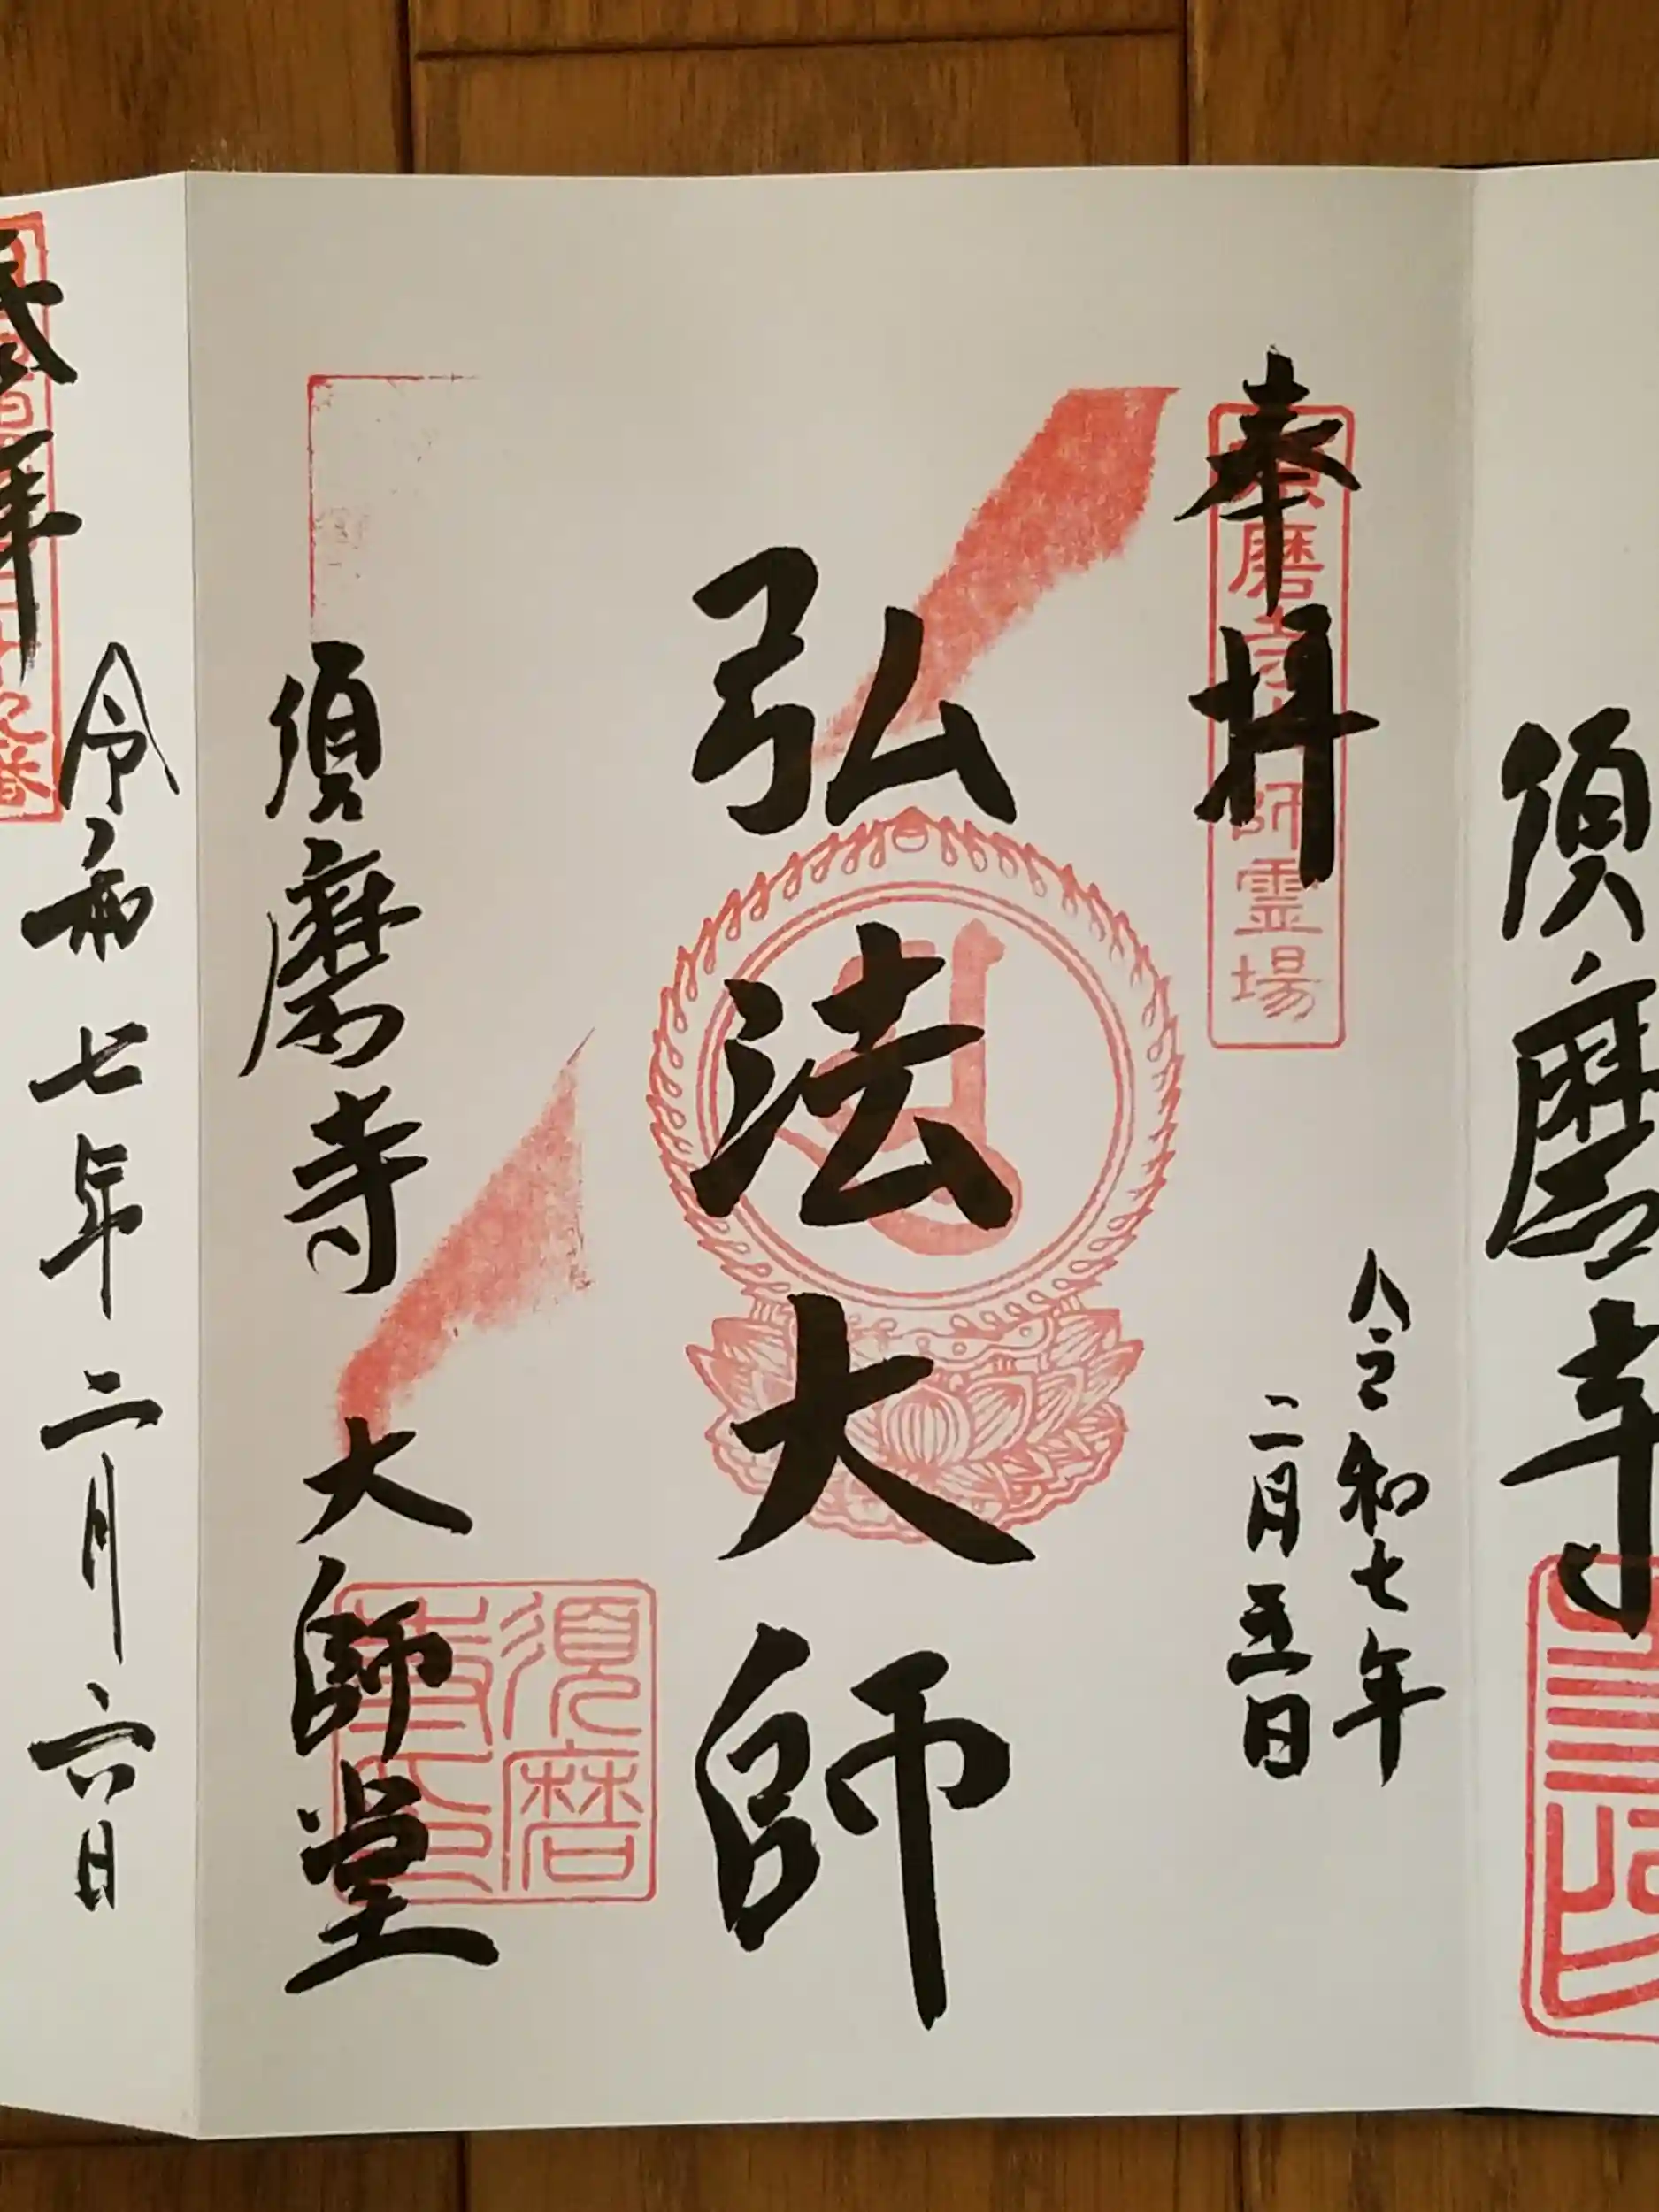 須磨寺
奉拝
令和七年
二月五日
弘法大師
須磨寺
大師堂
須磨
令和七年二月六日